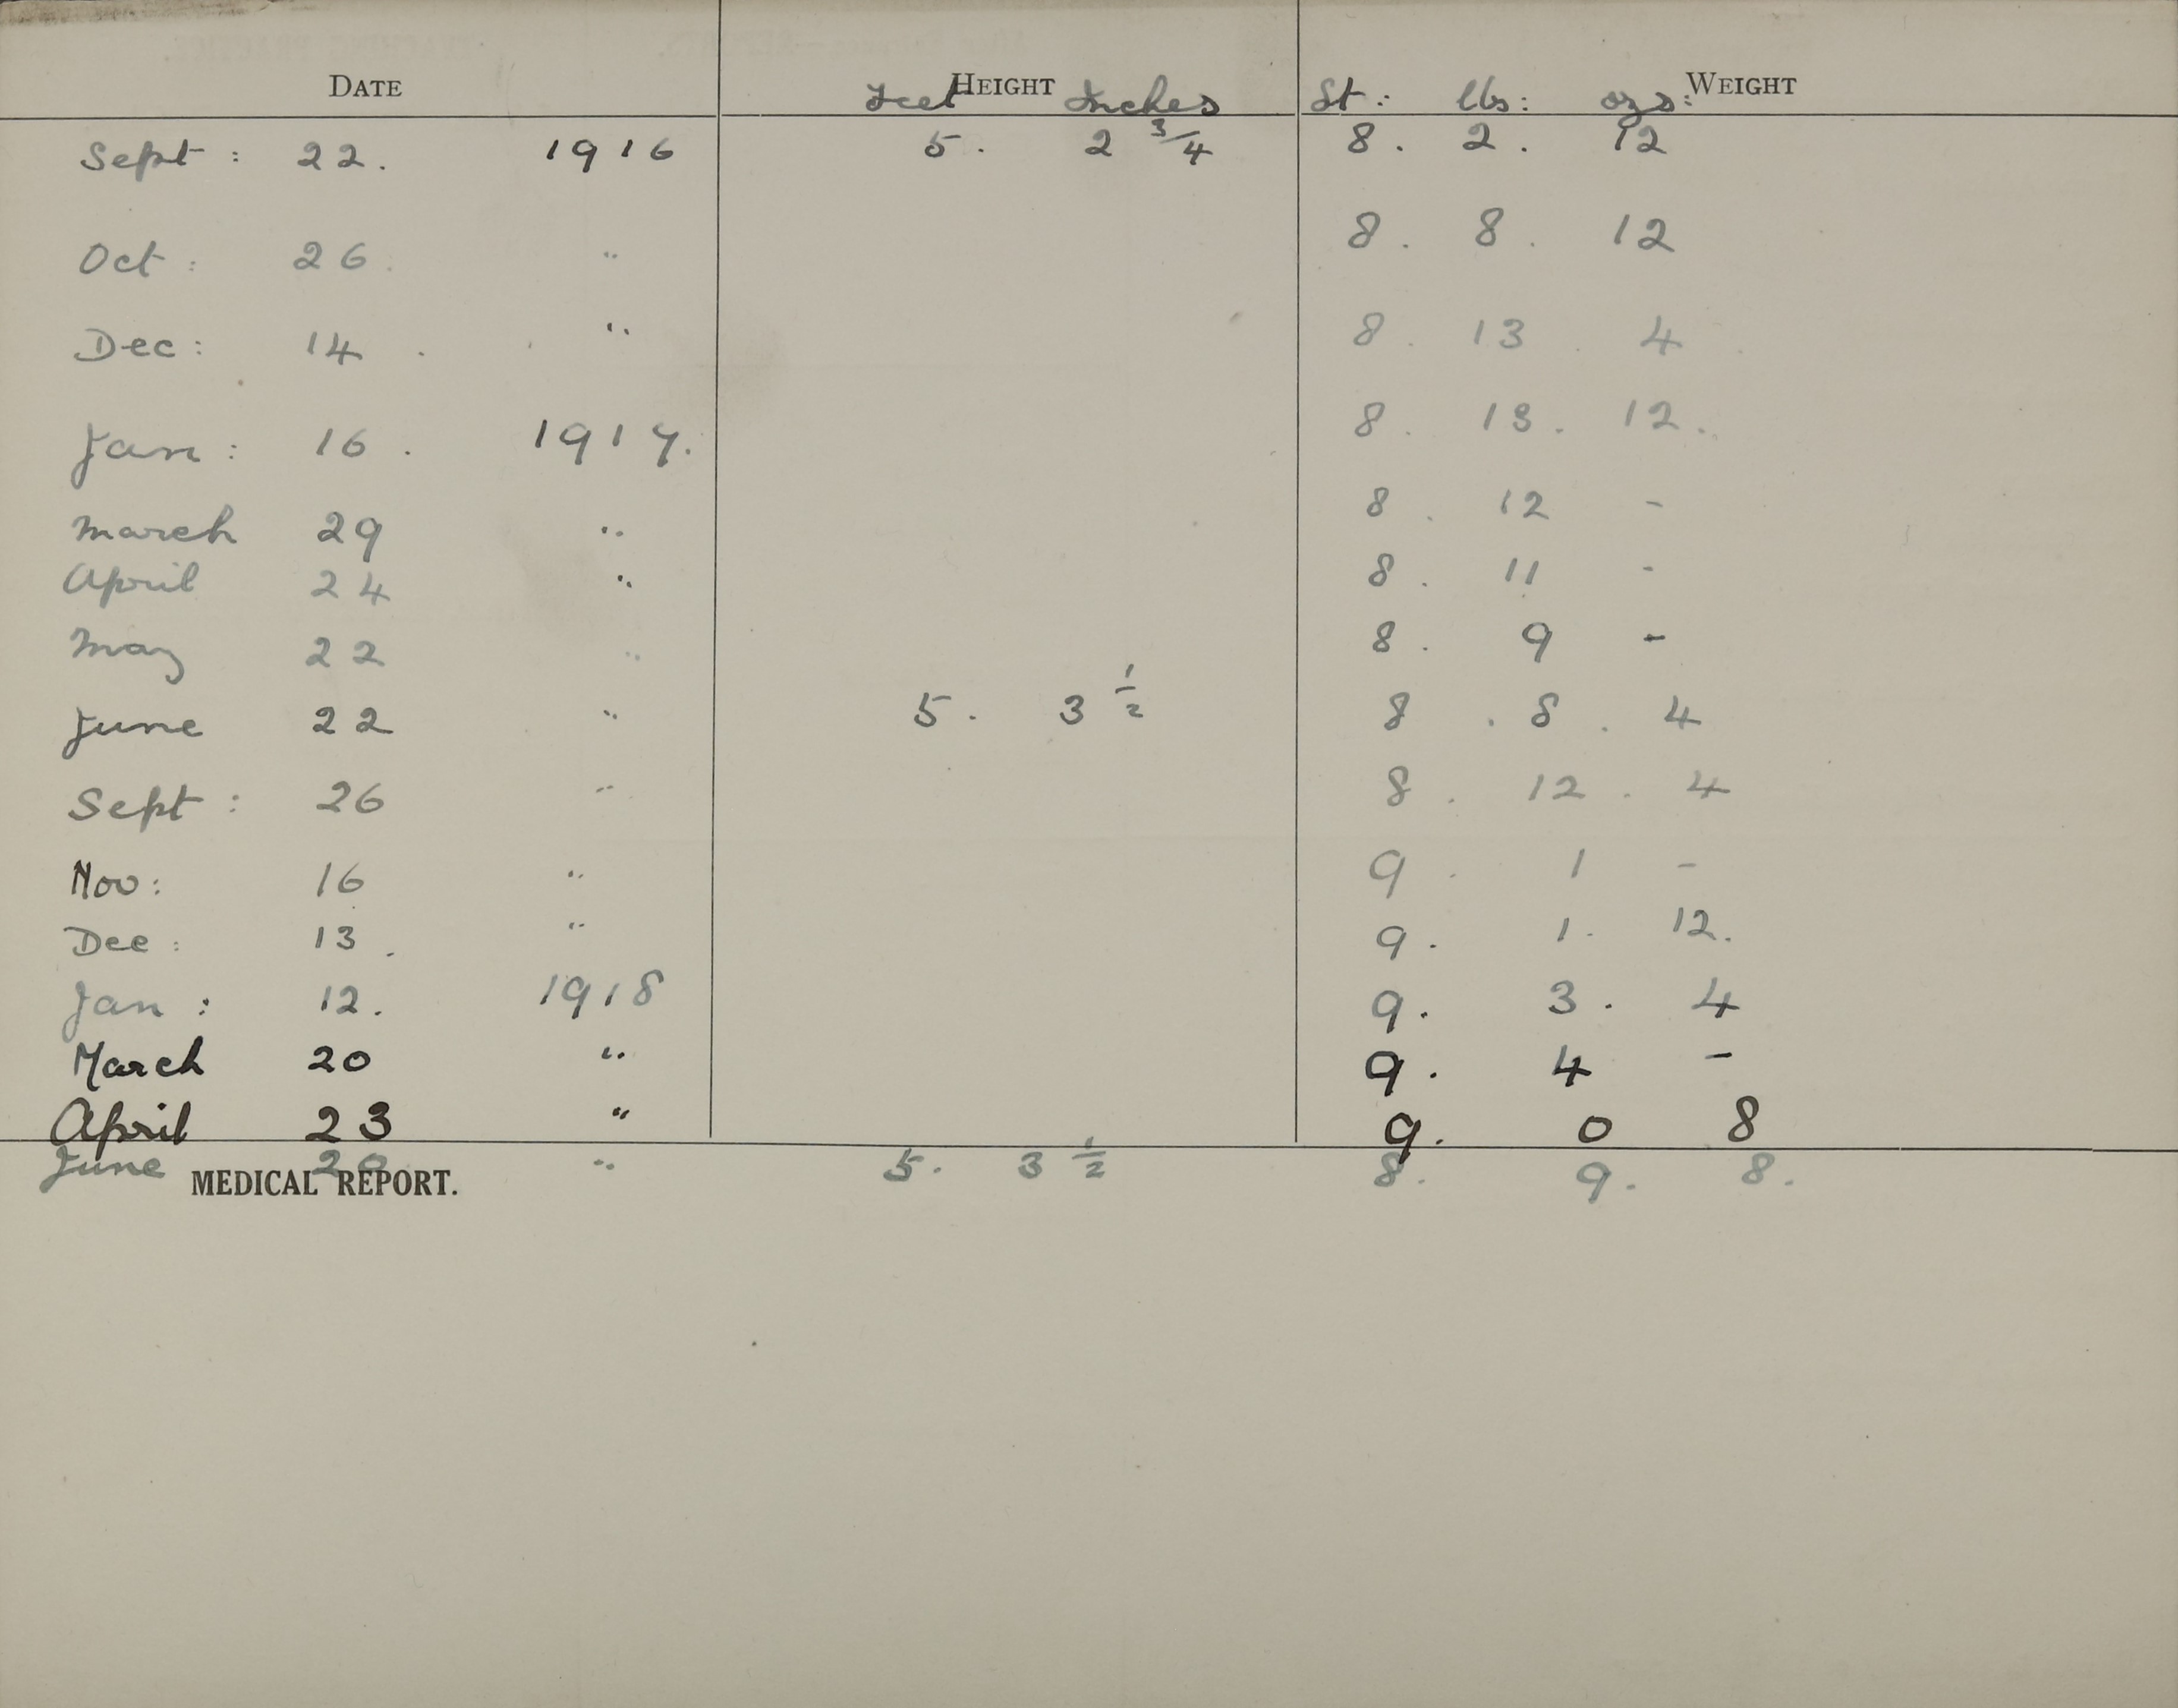 DATE HEIGHT WEIGHT
Feet Inches St: lbs: ozs:
Sept: 22. 1916 5. 2 3/4 8. 2. 12
Oct: 26. " 8. 8. 12
Dec: 14. " 8. 13. 4
Jan: 16. 1917. 8. 13. 12.
March 29 " 8. 12 -
April 24 " 8. 11 -
May 22 " 8. 9 -
June 22 " 5. 3 1/2 8. 8. 4
Sept: 26 " 8. 12. 4
Nov: 16 " 9. 1 -
Dec: 13. " 9. 1. 12.
Jan: 12. 1918 9. 3. 4
March 20 " 9. 4 -
April 23 " 9. 0 8
June 20 " 5. 3 1/2 8. 9. 8.
MEDICAL REPORT.